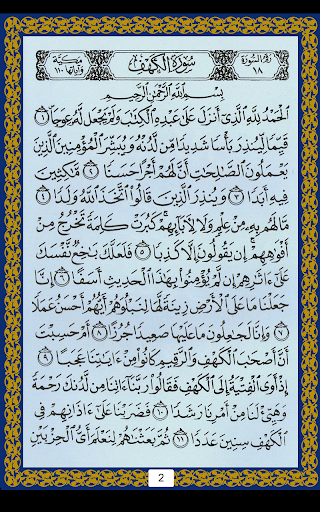 رقم السورة ١٨ سورة الكهف مكية وآياتها ١١٠
بِسْمِ اللَّهِ الرَّحْمَٰنِ الرَّحِيمِ
ٱلْحَمْدُ لِلَّهِ ٱلَّذِىٓ أَنزَلَ عَلَىٰ عَبْدِهِ ٱلْكِتَٰبَ وَلَمْ يَجْعَل لَّهُۥ عِوَجَا ۜ ١
قَيِّمًا لِّيُنذِرَ بَأْسًا شَدِيدًا مِّن لَّدُنْهُ وَيُبَشِّرَ ٱلْمُؤْمِنِينَ ٱلَّذِينَ
يَعْمَلُونَ ٱلصَّٰلِحَٰتِ أَنَّ لَهُمْ أَجْرًا حَسَنًا ٢ مَّٰكِثِينَ
فِيهِ أَبَدًا ٣ وَيُنذِرَ ٱلَّذِينَ قَالُوا۟ ٱتَّخَذَ ٱللَّهُ وَلَدًا ٤
مَّا لَهُم بِهِۦ مِنْ عِلْمٍ وَلَا لِءَابَآئِهِمْ ۚ كَبُرَتْ كَلِمَةً تَخْرُجُ مِنْ
أَفْوَٰهِهِمْ ۚ إِن يَقُولُونَ إِلَّا كَذِبًا ٥ فَلَعَلَّكَ بَٰخِعٌ نَّفْسَكَ
عَلَىٰٓ ءَاثَٰرِهِمْ إِن لَّمْ يُؤْمِنُوا۟ بِهَٰذَا ٱلْحَدِيثِ أَسَفًا ٦ إِنَّا
جَعَلْنَا مَا عَلَى ٱلْأَرْضِ زِينَةً لَّهَا لِنَبْلُوَهُمْ أَيُّهُمْ أَحْسَنُ عَمَلًا
٧ وَإِنَّا لَجَٰعِلُونَ مَا عَلَيْهَا صَعِيدًا جُرُزًا ٨ أَمْ حَسِبْتَ
أَنَّ أَصْحَٰبَ ٱلْكَهْفِ وَٱلرَّقِيمِ كَانُوا۟ مِنْ ءَايَٰتِنَا عَجَبًا ٩
إِذْ أَوَى ٱلْفِتْيَةُ إِلَى ٱلْكَهْفِ فَقَالُوا۟ رَبَّنَآ ءَاتِنَا مِن لَّدُنكَ رَحْمَةً
وَهَيِّئْ لَنَا مِنْ أَمْرِنَا رَشَدًا ١٠ فَضَرَبْنَا عَلَىٰٓ ءَاذَانِهِمْ فِى
ٱلْكَهْفِ سِنِينَ عَدَدًا ١١ ثُمَّ بَعَثْنَٰهُمْ لِنَعْلَمَ أَىُّ ٱلْحِزْبَيْنِ
2